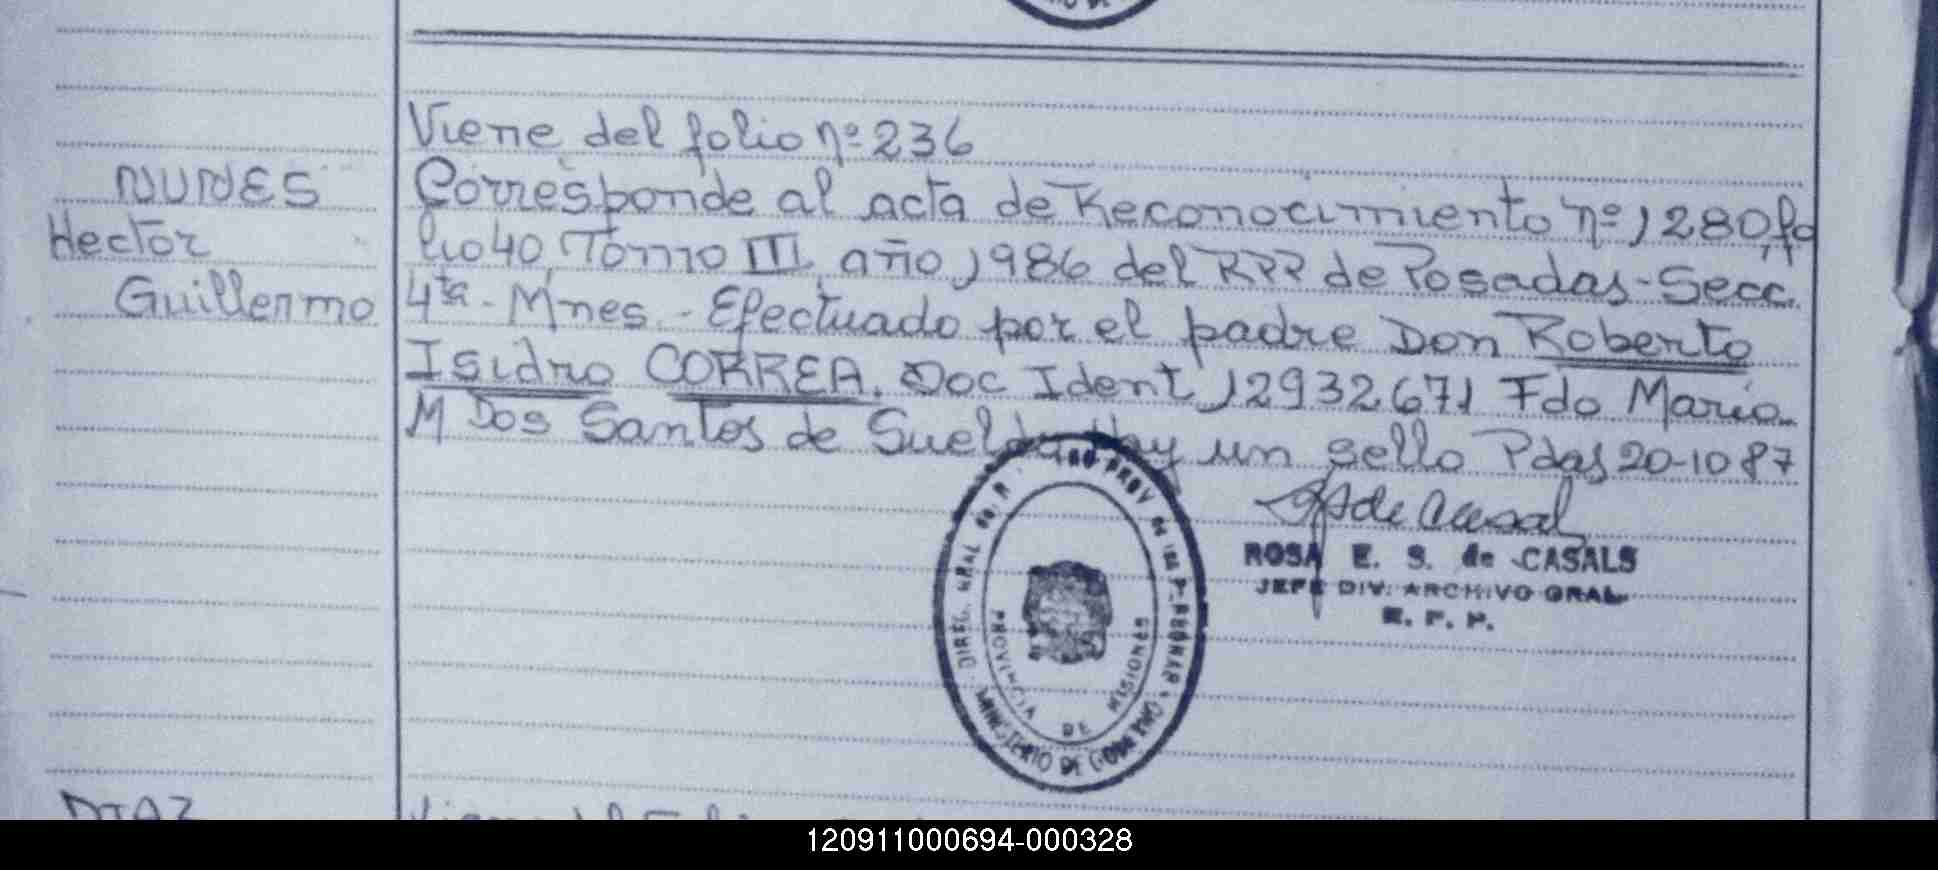 Viene del folio nº 236
NUNES
Hector
Guillermo
Corresponde al acta de Reconocimiento nº 1280 fo
lio 40 Tomo III año 1986 del RPP de Posadas - Secc.
4ta - Mnes. - Efectuado por el padre Don Roberto
Isidro CORREA. Doc Ident 12932671 Fdo Maria
M Dos Santos de Suelda Hay un sello Pdas 20-10 87
de Casal
ROSA E. S. de CASALS
JEFE DIV. ARCHIVO GRAL
PROV de las PERSONAS
DIREC. GRAL del R.
MINISTERIO DE GOBIERNO
PROVINCIA DE MISIONES
DIAZ
120911000694-000328